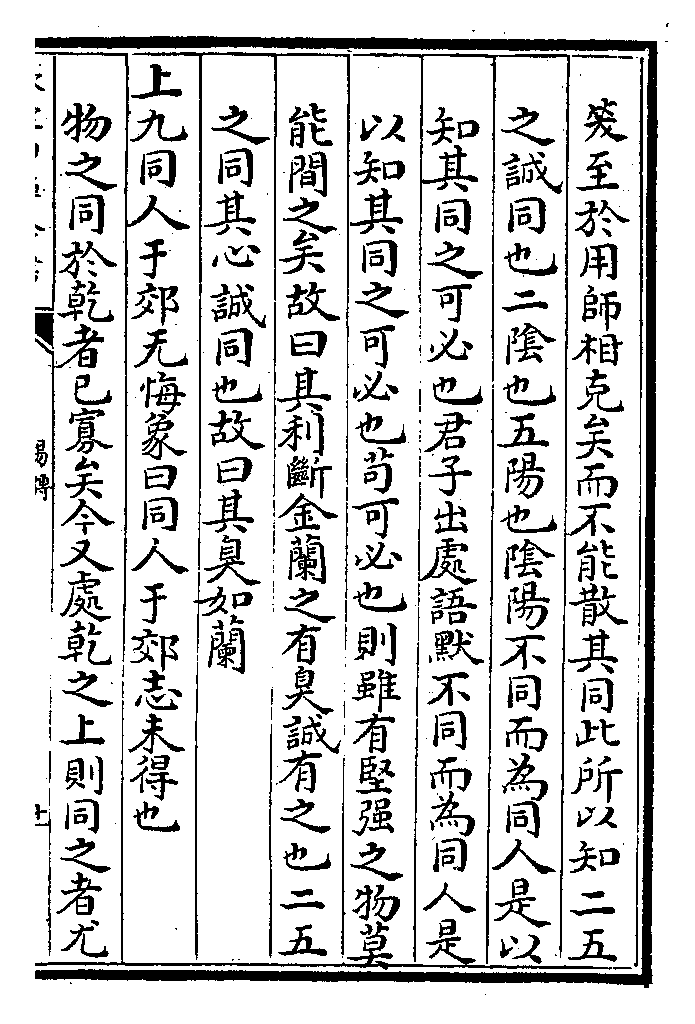 笑至於用師相克矣而不能散其同此所以知二五
之誠同也二陰也五陽也陰陽不同而為同人是以
知其同之可必也君子出處語默不同而為同人是
以知其同之可必也苟可必也則雖有堅强之物莫
能間之矣故曰其利斷金蘭之有臭誠有之也二五
之同其心誠同也故曰其臭如蘭
上九同人于郊无悔象曰同人于郊志未得也
物之同於乾者已寡矣今又處乾之上則同之者尤
易傳